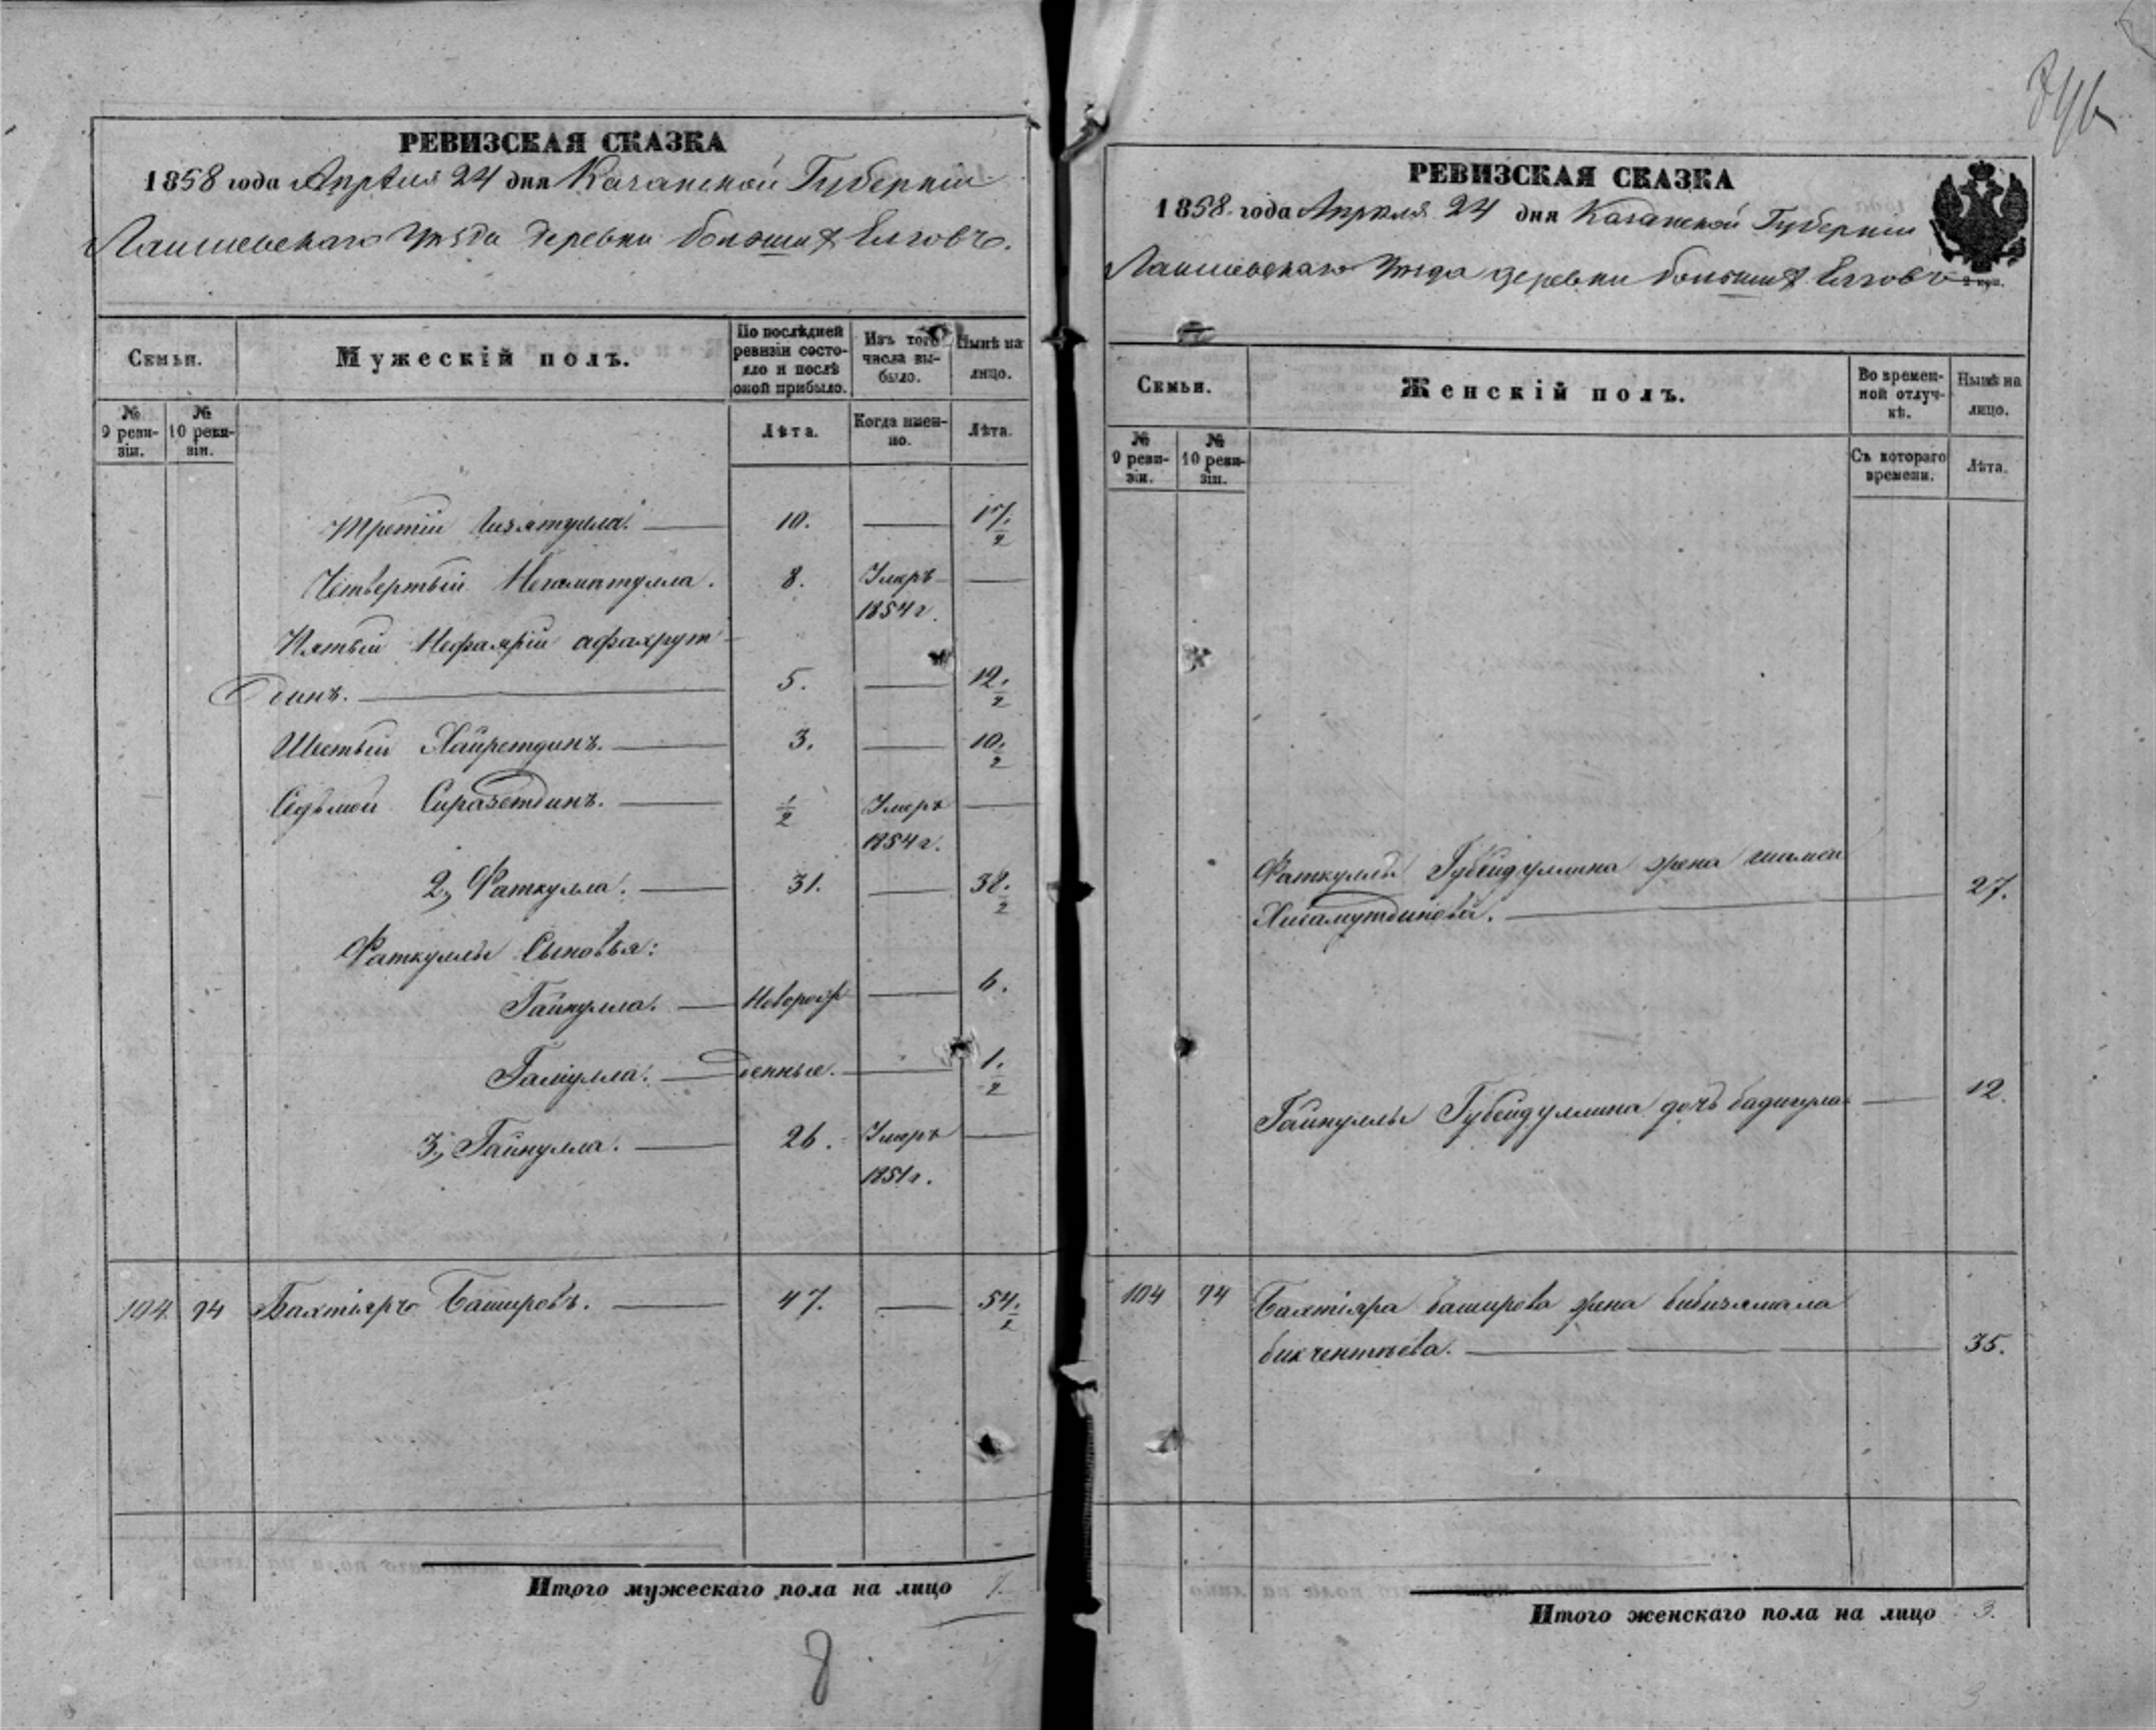 РЕВИЗСКАЯ СКАЗКА
1858 года Апреля 24 дня Казанской Губернии
Лаишевскаго Уѣзда деревни большихъ Елговъ.
Семьи.
Мужескій полъ.
По послѣдней ревизіи состояло и послѣ оной прибыло.
Изъ того числа выбыло.
Нынѣ на лицо.
№ 9 ревизіи.
№ 10 ревизіи.
Лѣта.
Когда именно.
Лѣта.
Третій Гизятулла. 10. 17. 1/2
Четвертый Негаматулла. 8. Умеръ
1854 г.
Пятый афахрут
динъ. 5. 12. 1/2
Шестый Хайретдинъ. 3. 10. 1/2
Седьмой Сиразетдинъ. 1/2 Умеръ
1854 г.
2, Фаткулла. 31. 38. 1/2
Фаткуллы Сыновья:
Гайнулла. Новорож 6.
Галиулла. денные. 1. 1/2
3, Гайнулла. 26. Умеръ
1851 г.
104. 94 Бахтіяръ Башировъ. 47. 54. 1/2
Итого мужескаго пола на лицо 7.
8
РЕВИЗСКАЯ СКАЗКА
1858 года Апреля 24 дня Казанской Губерніи
Лаишевскаго Уѣзда деревни большихъ Елговъ
Семьи.
Женскій полъ.
Во временной отлучкѣ.
Нынѣ на лицо.
№ 9 ревизіи.
№ 10 ревизіи.
Съ котораго времени.
Лѣта.
Фаткуллы Губейдуллина жена
Хисамутдинова. 27.
Гайнуллы Губейдуллина дочь бадигула 12.
104 94 Бахтіяра баширова жена бибизямала
бикчентѣева. 35.
Итого женскаго пола на лицо 3.